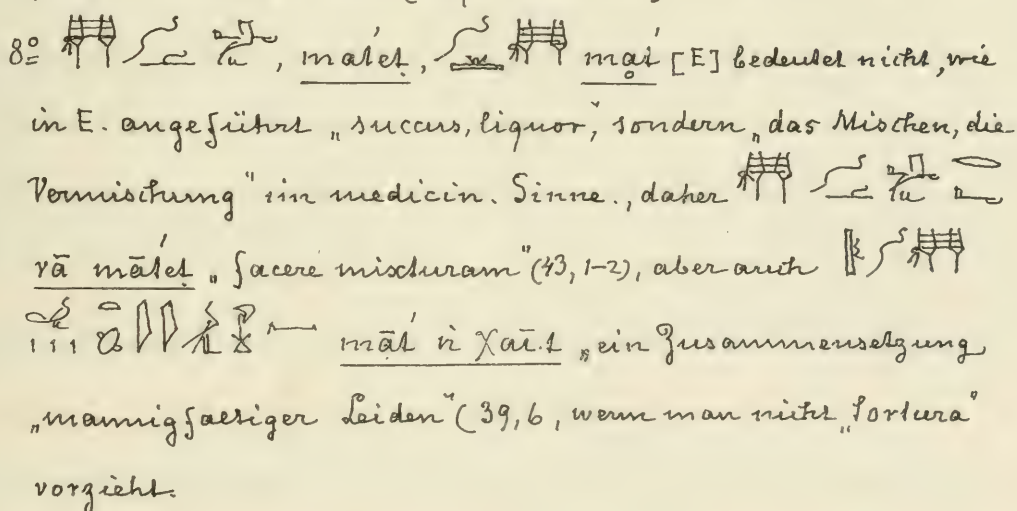 8º , mátet, maí [E] bedeutet nicht, wie
in E. angeführt „succus, liquor“, sondern „das Mischen, die
Vermischung“ im medicin. Sinne., daher
rā mātet „facere mixturam“ (43, 1-2), aber auch
māt n χaī.t „ein Zusammensetzung
„mannigfaltiger Leiden“ (39, 6, wenn man nicht „tortura“
vorzieht.